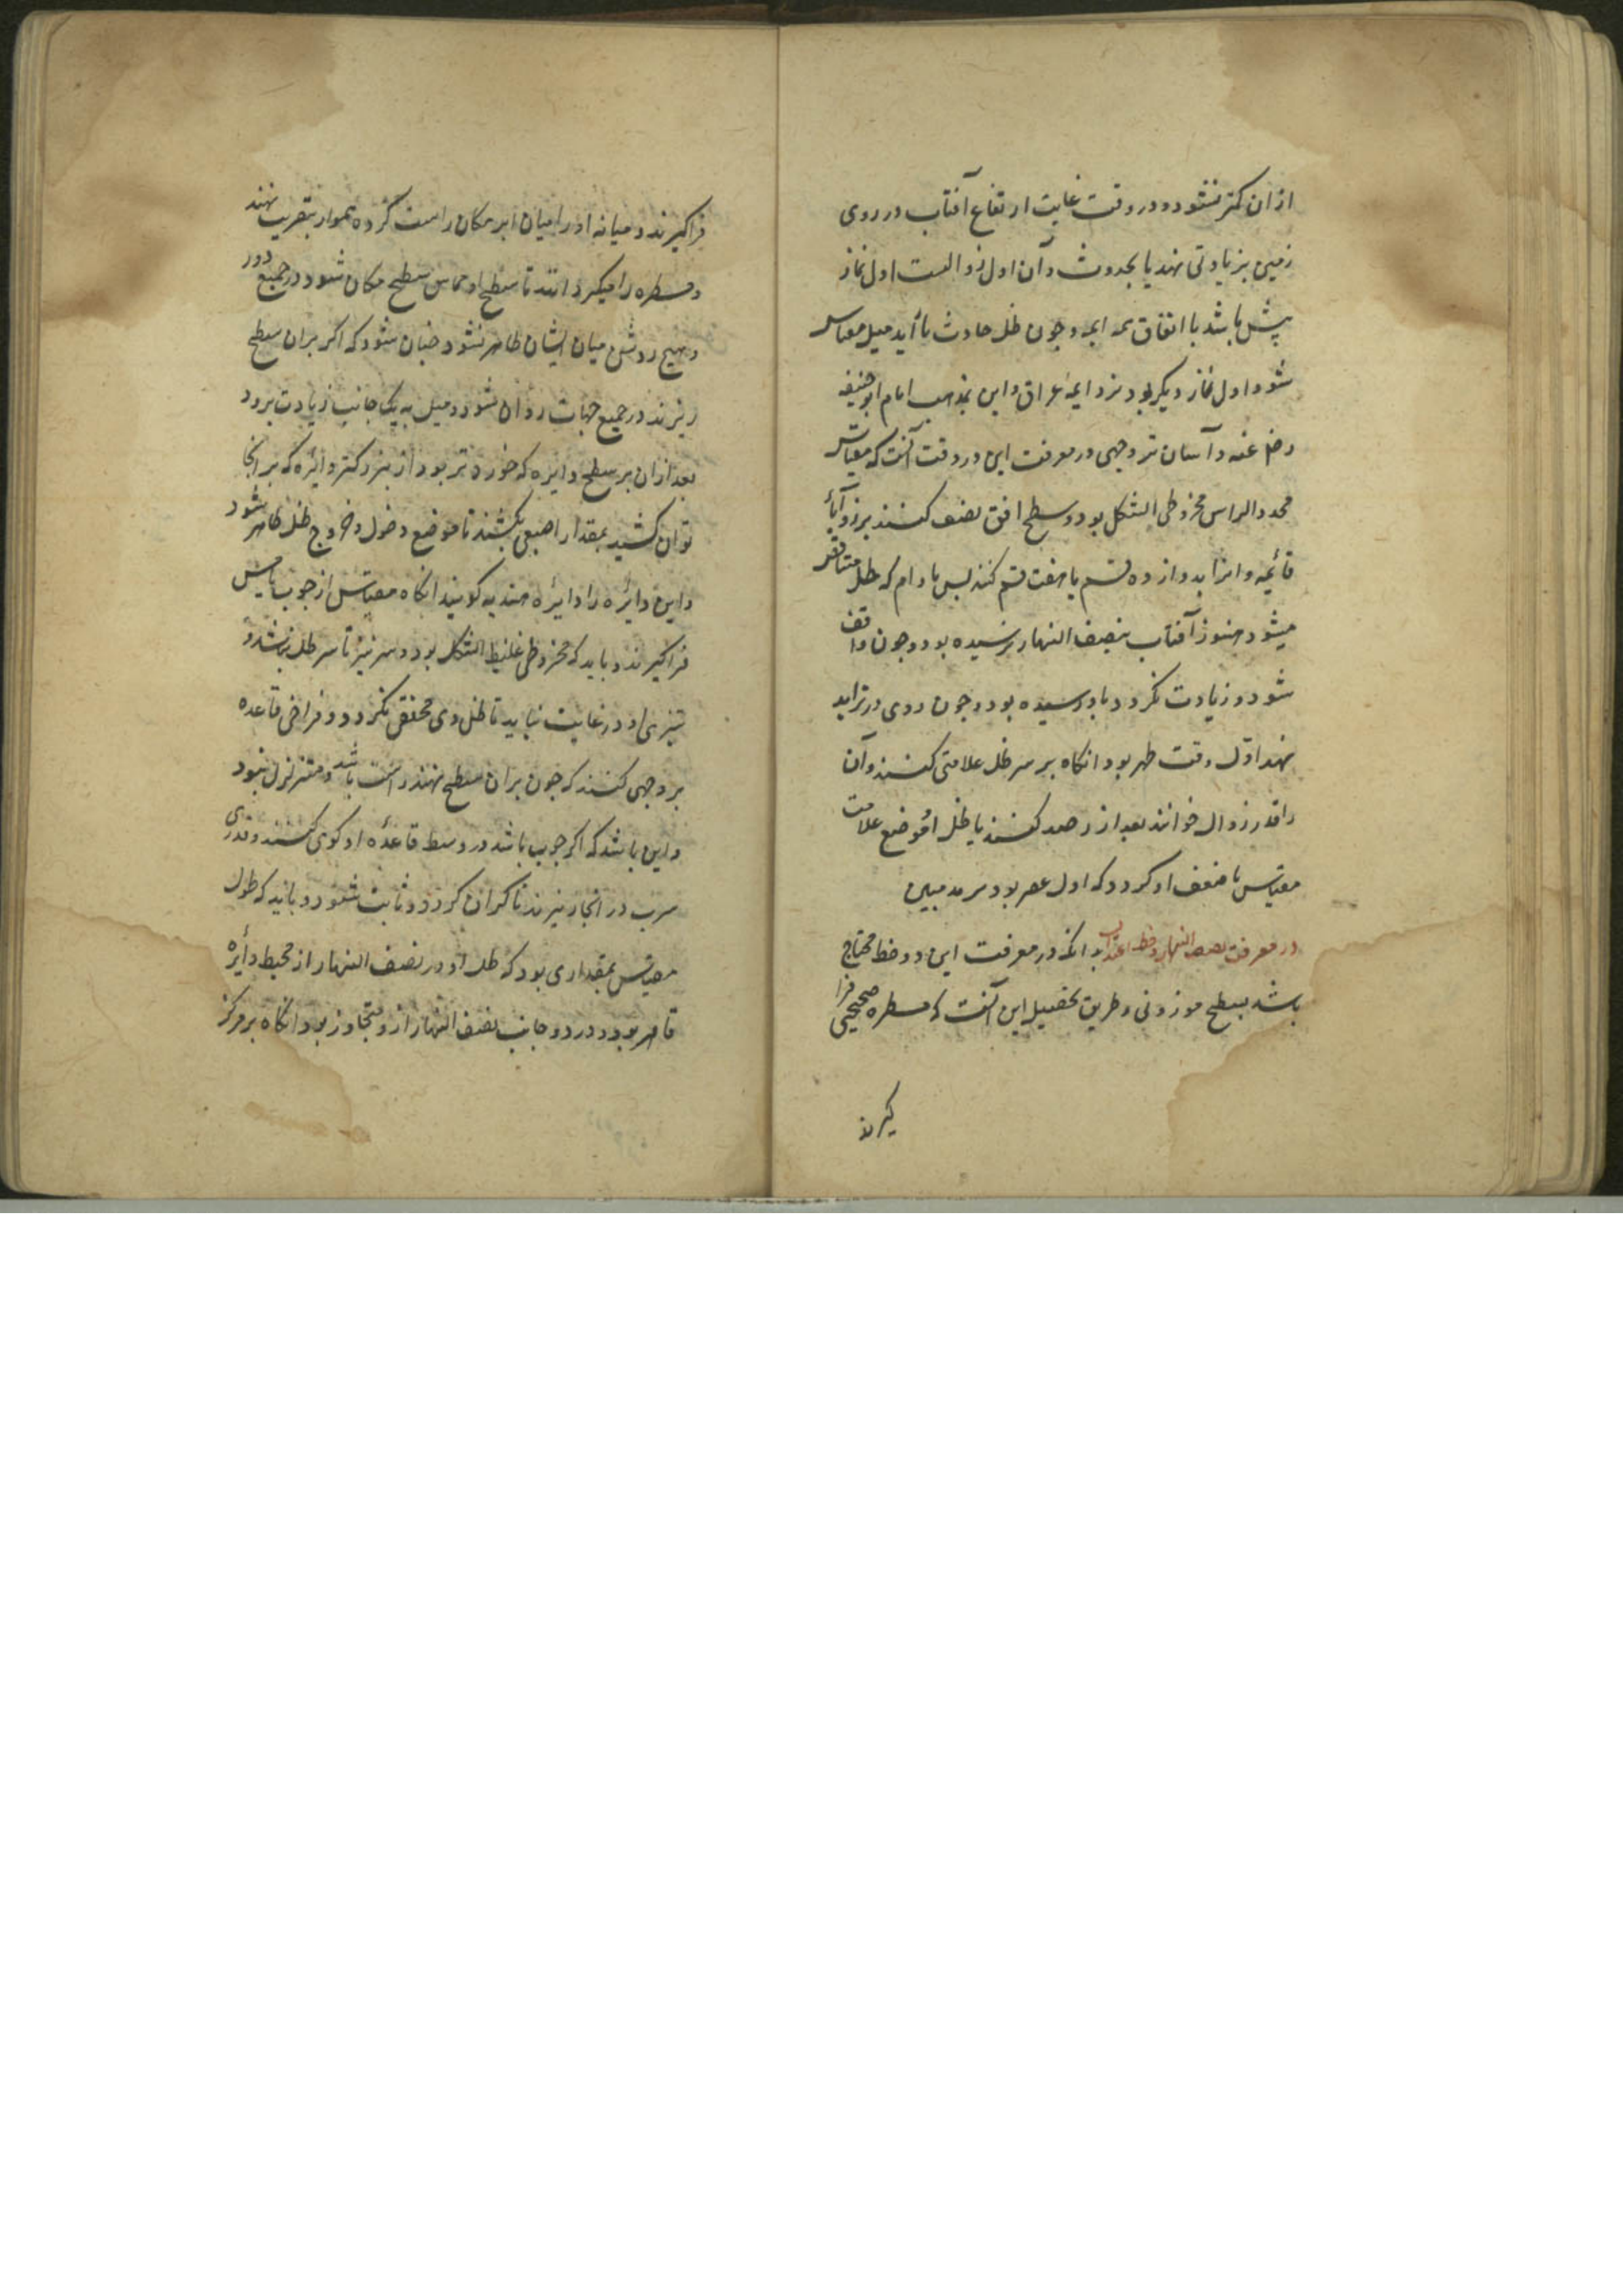 از ان کمتر نشود و در وقت غایت ارتفاع آفتاب در روی
زمین بزیادتی نهد یا بحدوث و آن اول زوالست اول نماز
پیش باشد با اتفاق همه ایمه و چون ظل حادث با آید میل مقیاس
شود اول نماز دیکر بود نزد ایمۀ عراق و این مذهب امام ابو حنیفه
رض عنه و آسان تر وجهی در معرفت این دو وقت آنست که مقیاس
محدد الراس مخروطی الشکل بود و سطح افق نصف کنند بر زوایاء
قائمه و انرا بدوازده قسم یا هفت قسم کنند بس مادام که ظل متناقص
میشود هنوز آفتاب بنصف النهار نرسیده بود و چون واقف
شود و زیادت نکردد باو رسیده بود و چون روی در تزاید
نهد اول وقت ظهر بود انکاه بر سر ظل علامتی کنند و آن
را قدر زوال خوانند بعد از رصد کنند یا ظل از موضع علامت
مقیاس با ضعف او کردد که اول عصر بود
در معرفت نصف النهار و خط اعتدال بدانکه در معرفت این دو خط محتاج
باشد بسطح موزونی و طریق تحصیل این آنست که مسطره صحیحی فرا
کیرند
فرا کیرند و میانه او را میان ابر مکان راست کرده هموار بتقریب نهند
و مسطره را میکردانند تا سطح او مماس سطح مکان شود در جمیع دور
و هیچ روشنی میان ایشان ظاهر نشود چنان شود که اکر بران سطح
ریزند در جمیع جهات روان شود و میل به یک جانب زیادت نرود
بعد ازان بر سطح دایره که خوردتر بود از بزرکتر دائره که بر انجا
توان کشید بمقدار اصبعی بکشند تا موضع دخول و خروج ظل ظاهر شود
و این دائره را دائرۀ هندیه کویند انکاه مقیاس از چوب یا مس
فرا کیرند و باید که مخروطی غلیظ الشکل بود و سر تیز تا سر ظل باشد و
تیزی او در غایت نباید تا ظل وی محقق نکردد و فراخی قاعده
بر وجهی کنند که چون بران سطح نهند راست باشد و متزلزل نبود
و این باشد که اکر چوب باشد در وسط قاعدۀ او کوی کنند و قدری
سرب در انجا ریزند تا کران کردد و ثابت شود و باید که طول
مقیاس بمقداری بود که ظل او در نصف النهار از محیط دائره
قاصر بود و در دو جانب نصف النهار ازو متجاوز بود انکاه بر مرکز